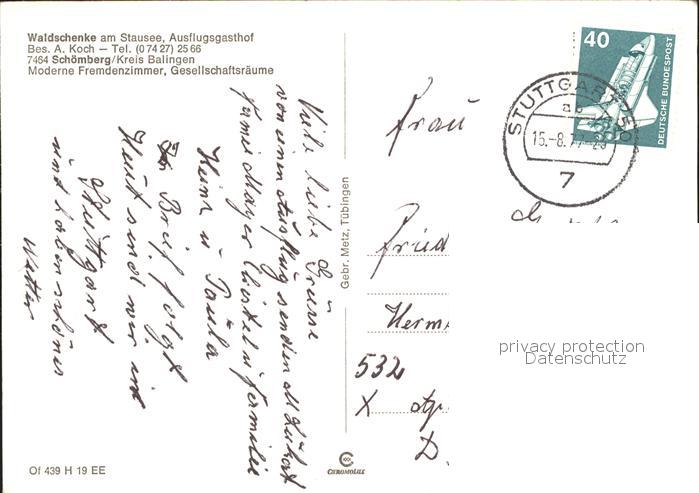 Waldschenke am Stausee, Ausflugsgasthof
Bes. A. Koch — Tel. (0 74 27) 25 66
7464 Schömberg/Kreis Balingen
Moderne Fremdenzimmer, Gesellschaftsräume
Viele liebe Grüsse
von einem Ausflug senden
Familie Mayer u Familie
Heinz u Paula
Brief folgt
Heut sind wir in
Stuttgart
und haben schönes
Wetter
Gebr. Metz, Tübingen
40
DEUTSCHE BUNDESPOST
STUTTGART
15.-8.77
7
Frau
Fried
Herm
532
X
D.
privacy protection
Datenschutz
Of 439 H 19 EE
CHROMOLUX